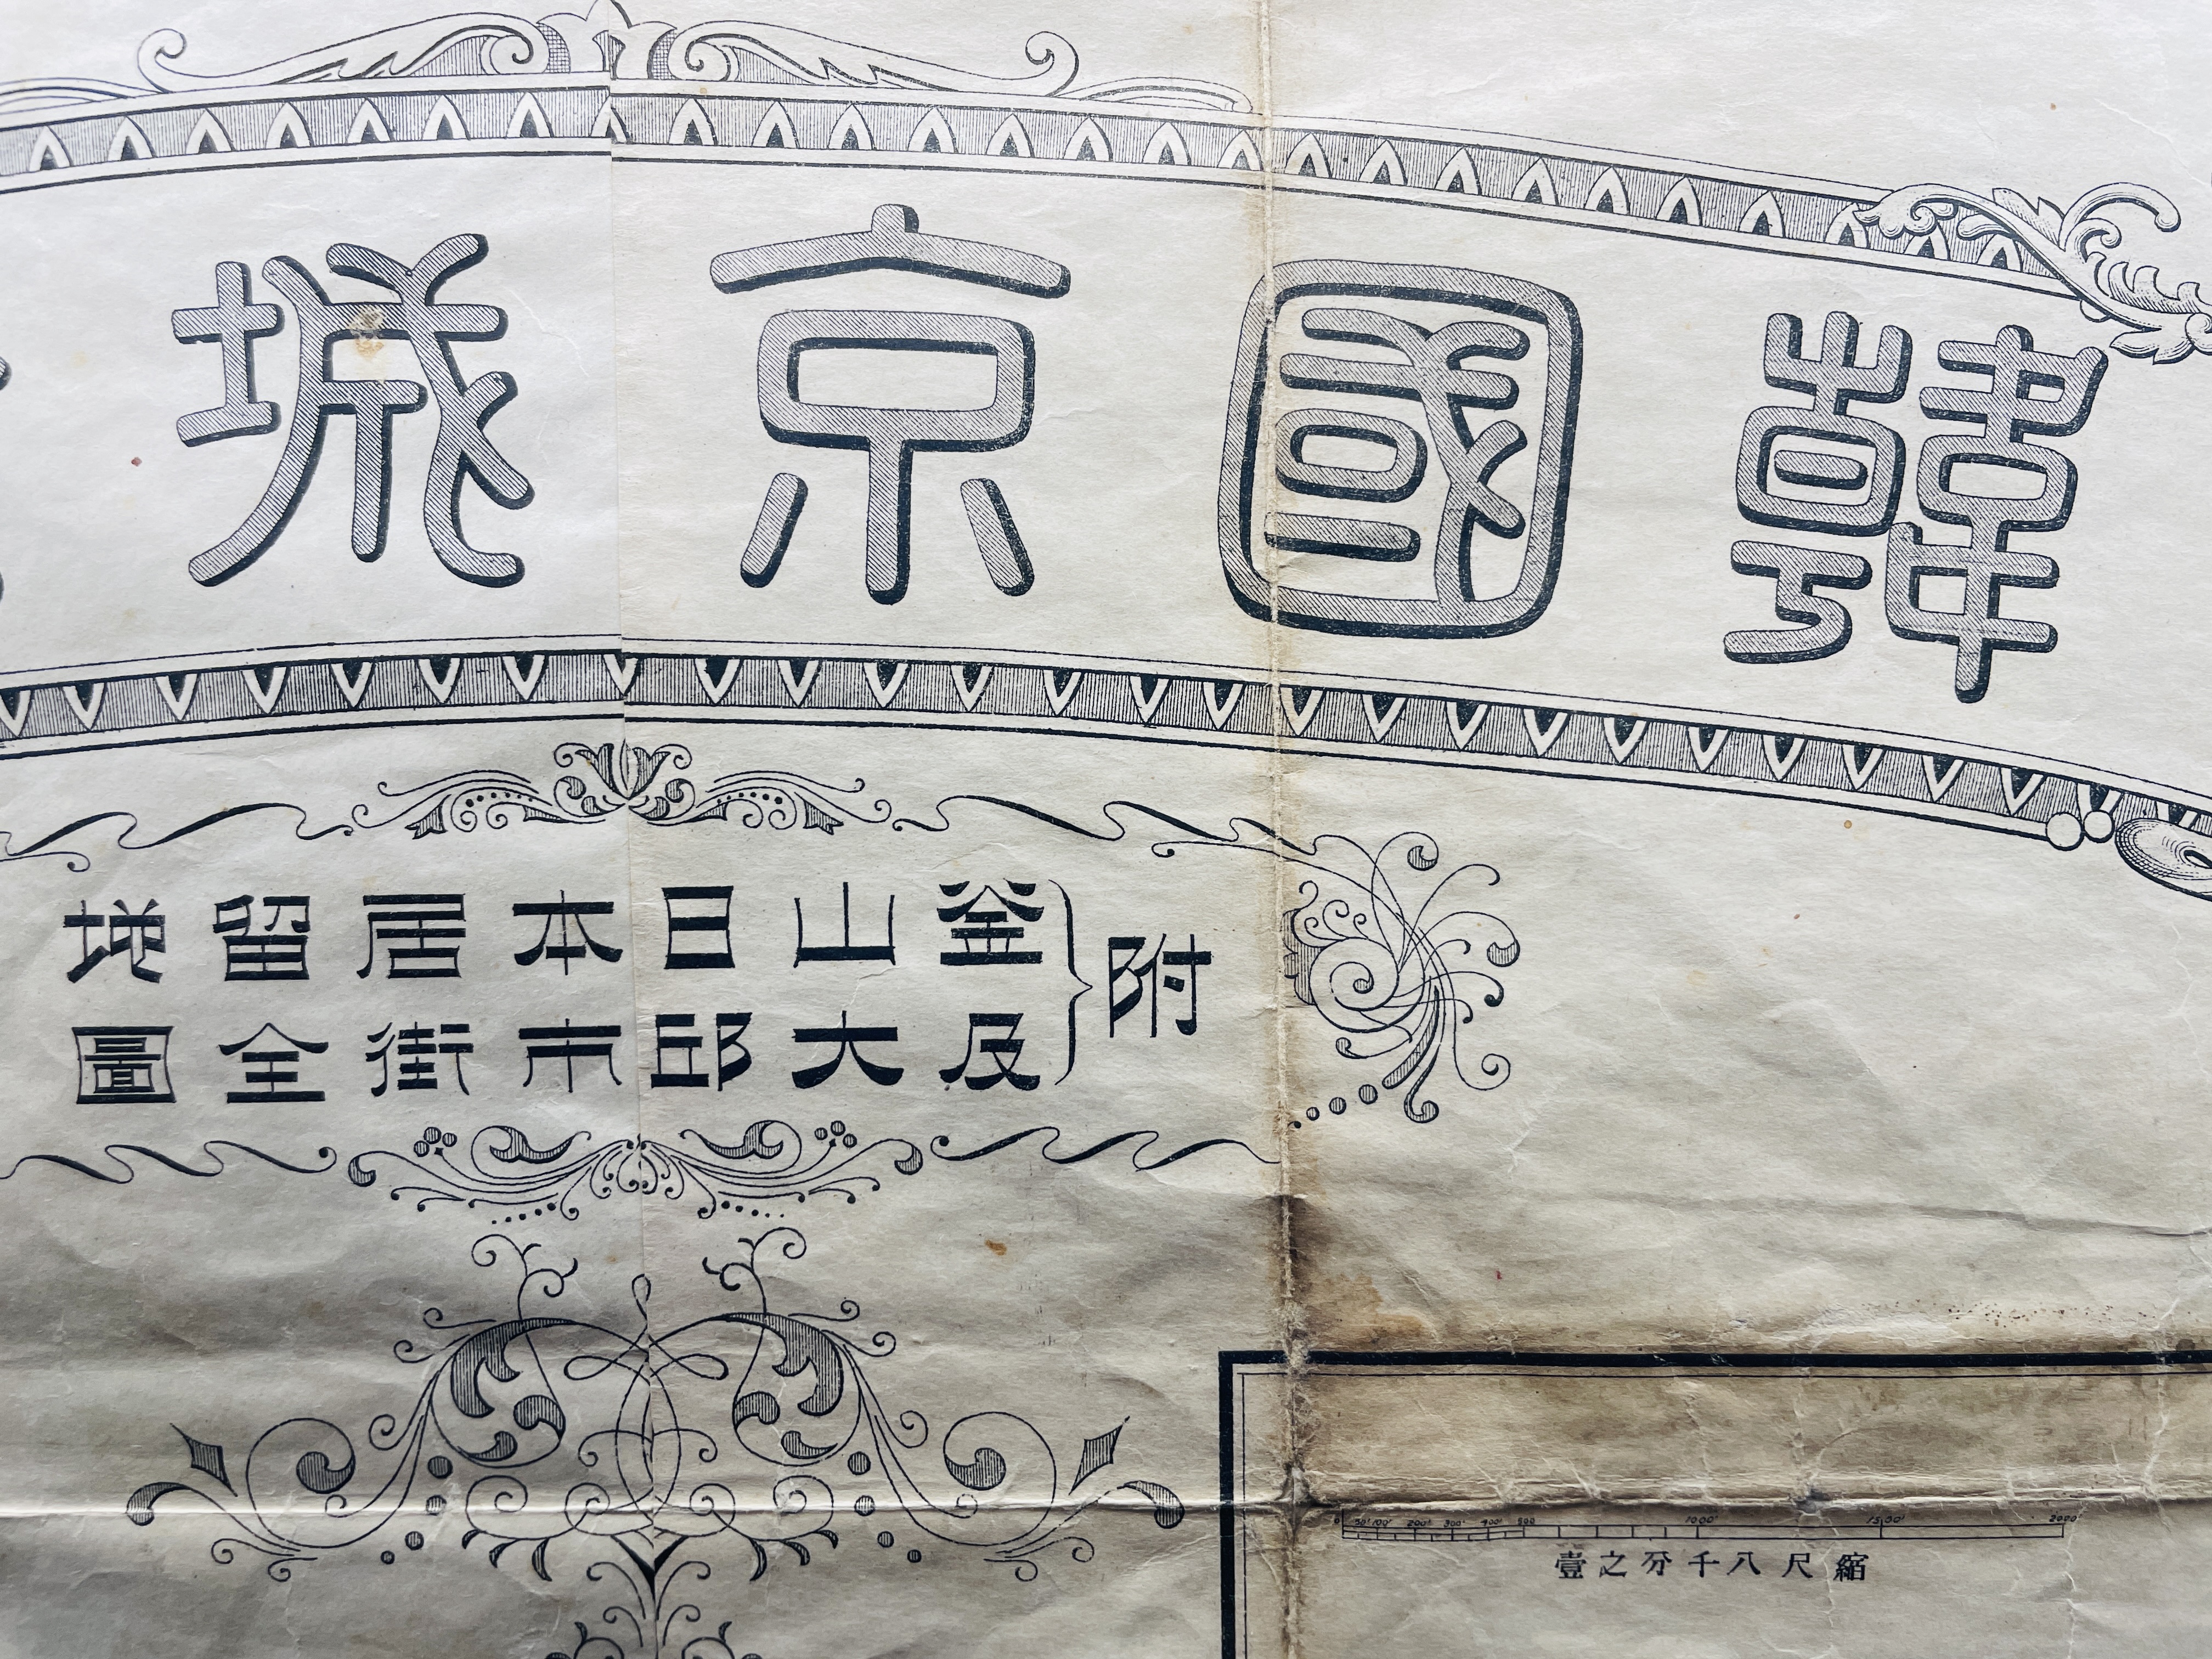 韓國京城
附
釜山日本居留地
及大邱市街全圖
0 50' 100' 200' 300' 400' 500 1000' 1500' 2000'
縮尺八千分之壹